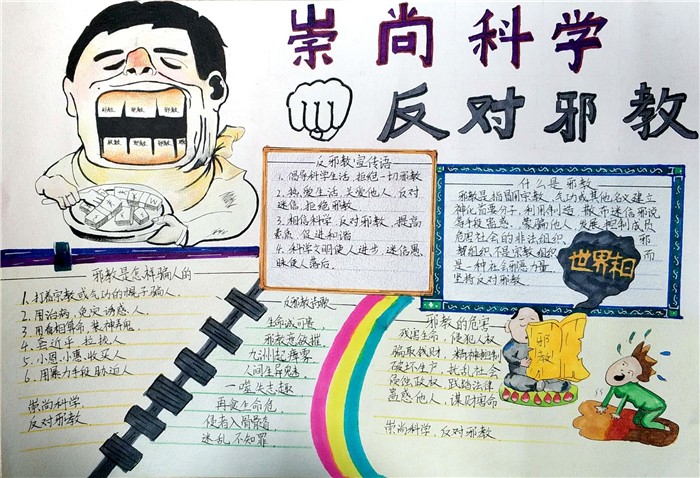 崇尚科学
反对邪教
邪教 邪教 邪教
邪教 邪教 邪教
反邪教宣传语
1. 倡导科学生活,拒绝一切邪教
2. 热爱生活,关爱他人,反对
迷信,拒绝邪教
3. 相信科学,反对邪教,提高
素质,促进和谐
4. 科学文明使人进步,迷信愚
昧使人落后。
什么是邪教
邪教是指冒用宗教、气功或其他名义建立
神化首要分子,利用制造、散布迷信邪说
等手段蛊惑、蒙骗他人,发展,控制成员
危害社会的非法组织 邪
教组织不是宗教组织 而
是一种社会邪恶力量
坚持反对邪教
世界末日
邪教是怎样骗人的
1. 打着宗教或气功的幌子骗人
2. 用治病,免灾诱惑人.
3. 用看相算命,装神弄鬼
4. 套近乎 拉拢人
5. 小恩小惠,收买人
6. 用暴力手段胁迫人
崇尚科学,
反对邪教
反邪教诗歌
生命诚可贵,
邪教煮欲摧.
九州起瘴雾
人间生异魅.
一噬失志趣
再噬生命危,
侵者入骨髓
迷乱不知罪.
邪教的危害
残害生命,侵犯人权
骗取钱财,精神控制
破坏生产,扰乱社会
侵蚀政权,践踏法律
蛊惑他人,谋财害命
崇尚科学,反对邪教
邪教